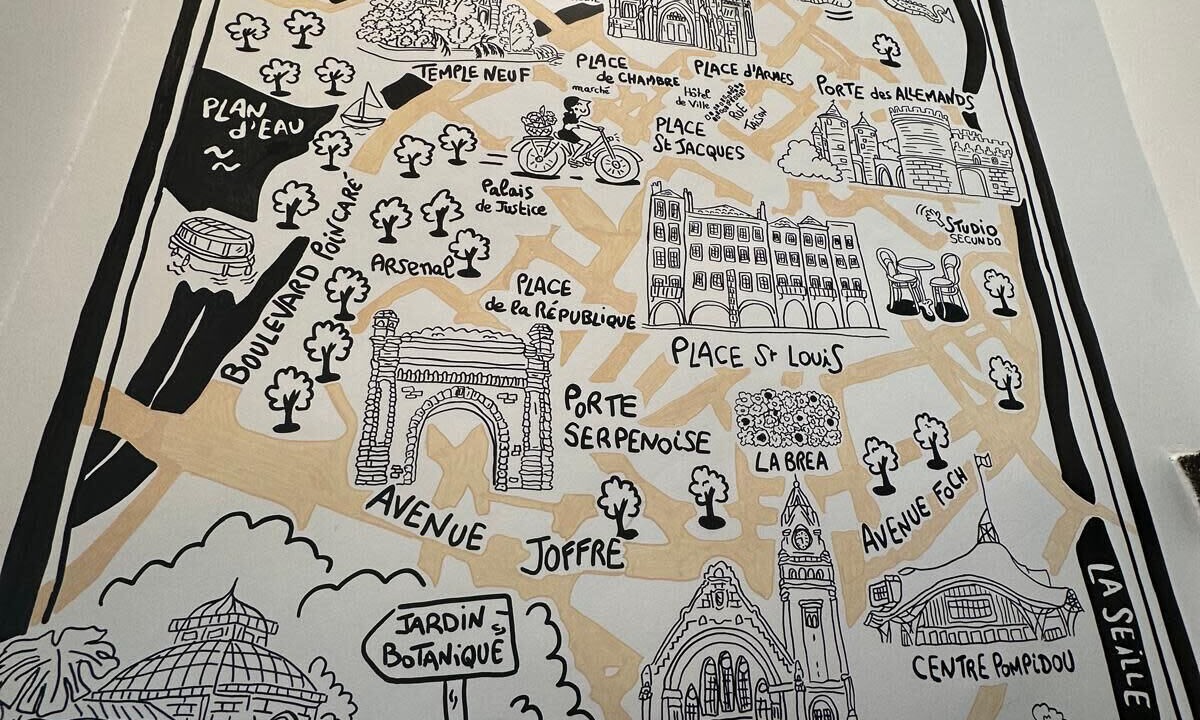 TEMPLE NEUF
PLACE
de CHAMBRE
marché
PLACE d'ARMES
Hôtel
de Ville
RUE
TAISON
PORTE des ALLEMANDS
PLAN
d'EAU
PLACE
St JACQUES
Palais
de Justice
STUDIO
SECUNDO
BOULEVARD POINCARÉ
Arsenal
PLACE
de la RÉPUBLIQUE
PLACE St LOUIS
PORTE
SERPENOISE
LA BREA
AVENUE
JOFFRE
AVENUE FOCH
JARDIN
BOTANIQUE
CENTRE POMPIDOU
LA SEILLE